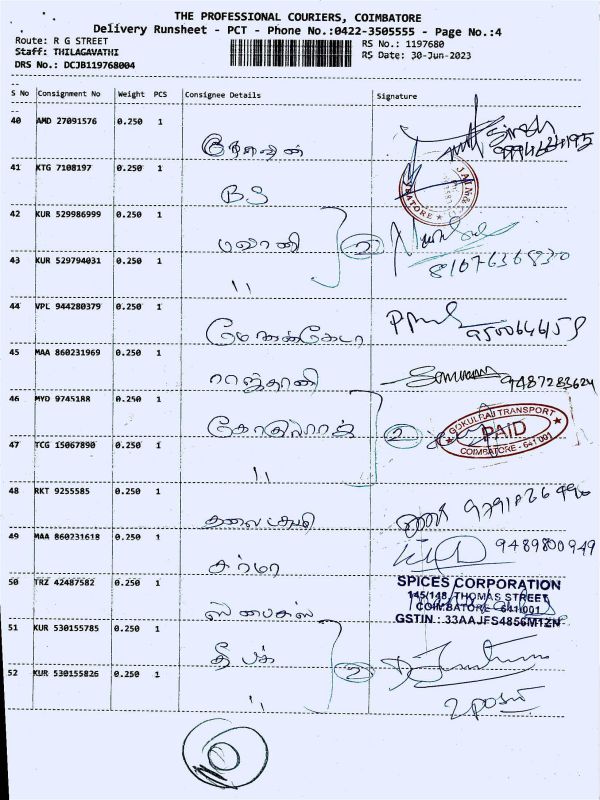 THE PROFESSIONAL COURIERS, COIMBATORE
Delivery Runsheet - PCT - Phone No.:0422-3505555 - Page No.:4
Route: R G STREET
Staff: THILAGAVATHI
DRS No.: DCJB119768004
RS No.: 1197680
RS Date: 30-Jun-2023
S No Consignment No Weight PCS Consignee Details Signature
40 AMD 27091576 0.250 1
41 KTG 7108197 0.250 1
BS
42 KUR 529986999 0.250 1
பலானி 2
43 KUR 529794031 0.250 1
11
8107636830
44 VPL 944280379 0.250 1
45 MAA 860231969 0.250 1
ராஜ்தானி
9487283624
46 MYD 9745188 0.250 1
கோகுல்ராஜ் 2
GOKULRAJ TRANSPORT
PAID
COIMBATORE - 641 001
47 TCG 15067890 0.250 1
11
48 RKT 9255585 0.250 1
49 MAA 860231618 0.250 1
சர்மா
9489800949
50 TRZ 42487582 0.250 1
ஸ்பைசஸ்
SPICES CORPORATION
145/148, THOMAS STREET
COIMBATORE - 641 001
GSTIN : 33AAJFS4856M1ZN
51 KUR 530155785 0.250 1
தீபக் 2
52 KUR 530155826 0.250 1
11